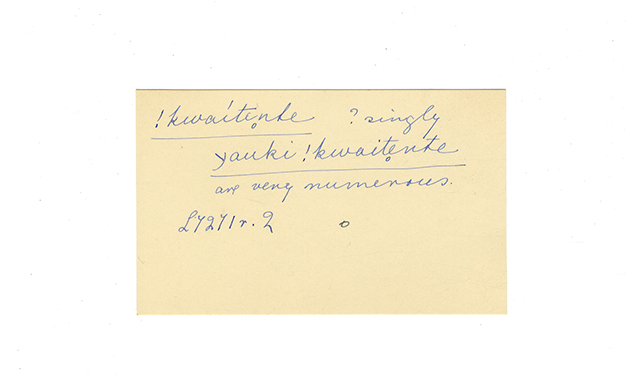 !kwáitẹnte ? singly
yauki !kwaitẹnte
are very numerous.
L7271r. 2 o